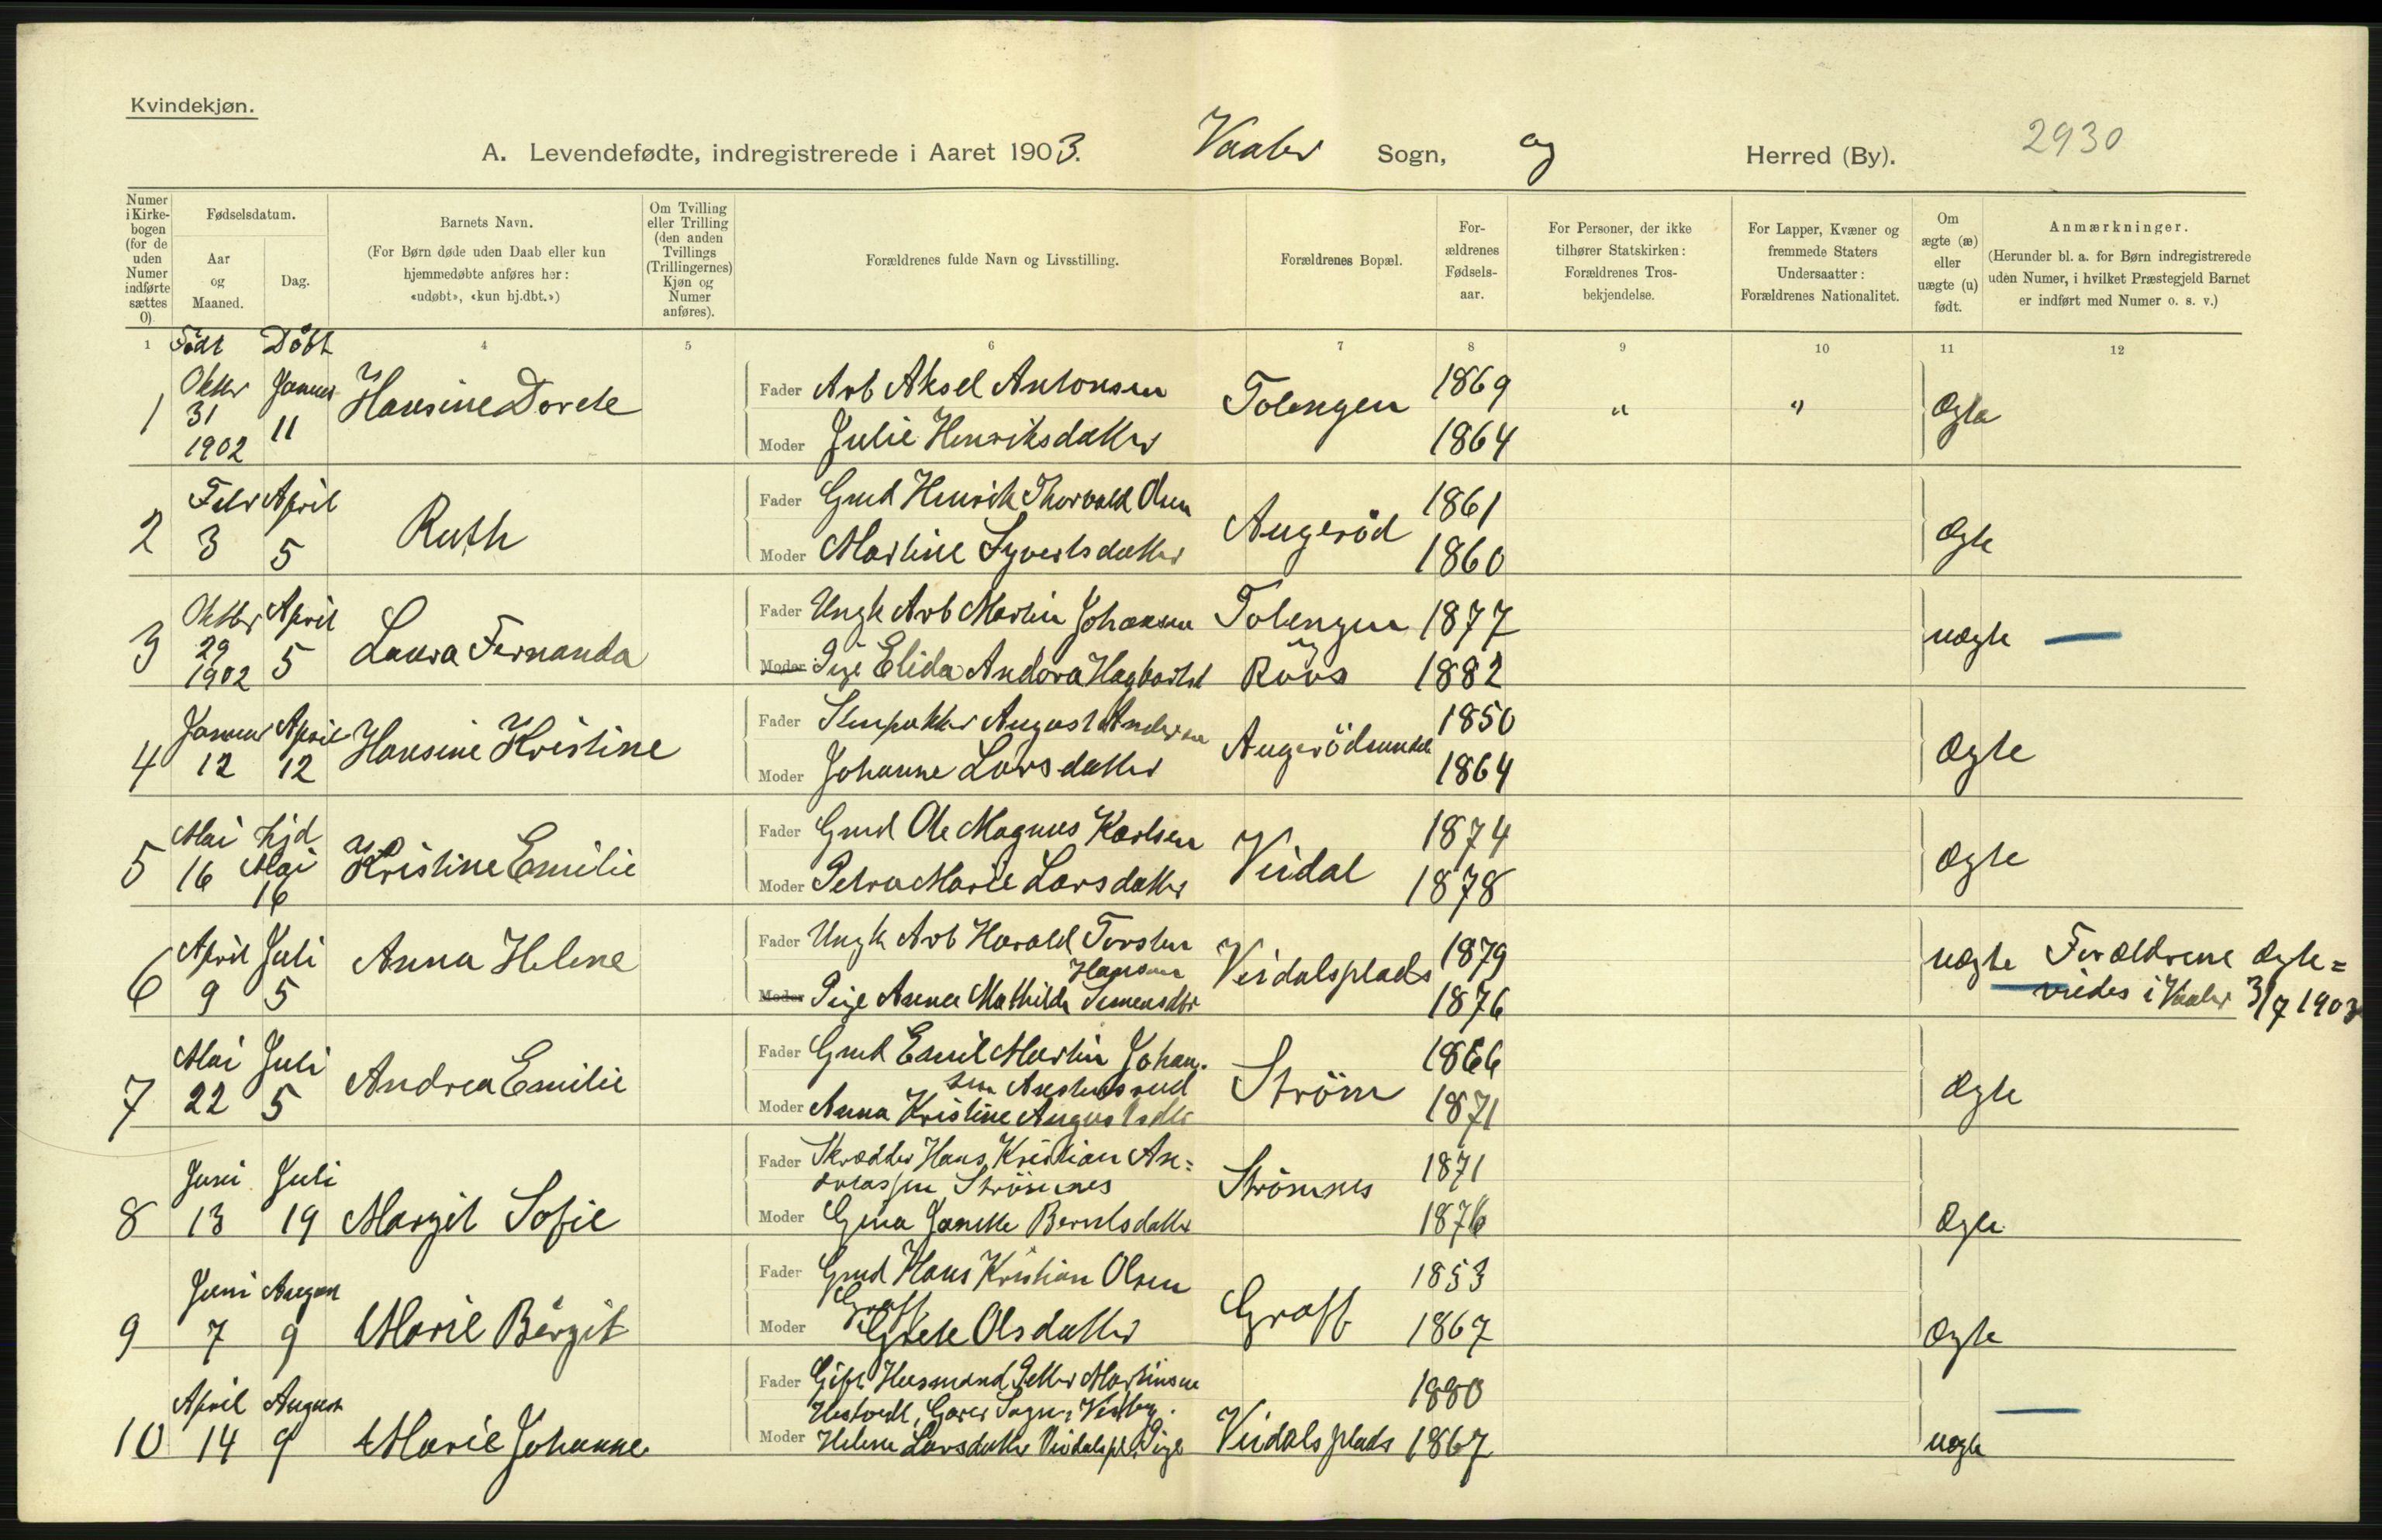 Kvindekjøn.
A. Levendefødte, indregistrerede i Aaret 1903. Vaaler Sogn, og Herred (By). 2930
Numer i Kirkebogen (for de uden Numer indførte sættes 0).
Fødselsdatum.
Aar og Maaned.
Dag.
Barnets Navn.
(For Børn døde uden Daab eller kun hjemmedøbte anføres her: «udøbt», «kun hj.dbt.»)
Om Tvilling eller Trilling (den anden Tvillings (Trillingernes) Kjøn og Numer anføres).
Forældrenes fulde Navn og Livsstilling.
Forældrenes Bopæl.
Forældrenes Fødselsaar.
For Personer, der ikke tilhører Statskirken: Forældrenes Trosbekjendelse.
For Lapper, Kvæner og fremmede Staters Undersaatter: Forældrenes Nationalitet.
Om ægte (æ) eller uægte (u) født.
Anmærkninger.
(Herunder bl. a. for Børn indregistrerede uden Numer, i hvilket Præstegjeld Barnet er indført med Numer o. s. v.)
1 Født Döbt 4 5 6 7 8 9 10 11 12
1 Oktbr 31 1902 Januar 11 Hansine Dorete
Fader Arb Aksel Antonsen Tolengen 1869 " " Ægte
Moder Julie Henriksdatter 1864
2 Febr 3 April 5 Ruth
Fader Gmd Henrik Thorvald Olsen Augeröd 1861 Ægte
Moder Martine Syvertsdatter 1860
3 Oktbr 29 1902 April 5 Laura Fernanda
Fader Ungk Arb Martin Johansen Tolengen 1877 uægte
Moder Pige Elida Andora Hagbartsd og Röös 1882
4 Januar 12 April 12 Hansine Kristine
Fader August Andersen 1850 Ægte
Moder Johanne Larsdatter 1864
5 Mai 16 hjd Mai 16 Kristine Emilie
Fader Gmd Ole Magnus Karlsen Veidal 1874 Ægte
Moder Petra Marie Larsdatter 1878
6 April 9 Juli 5 Anna Helene
Fader Ungk Arb Harald Torsten Hansen Veidalsplads 1879 uægte Forældrene ægte=
Moder Pige Anna Mathilde Simensdtr 1876 viedes i Vaaler 3/7 1903
7 Mai 22 Juli 5 Andrea Emilie
Fader Gmd Emil Martin Johan.
sen Ström 1866 Ægte
Moder Anna Kristine Augustsdtr 1871
8 Juni 13 Juli 19 Margit Sofie
Fader Skrædder Hans Kristian An=
dreassen Strömnes Strömnes 1871
Moder Gina Janette Berntsdatter 1876 Ægte
9 Juni 7 August 9 Marie Bergit
Fader Gmd Hans Kristian Olsen 1853
Graff Graff
Moder Grete Olsdatter 1867 Ægte
10 April 14 August 9 Marie Johanne
Fader Gift Husmand Petter Martinsen 1880
Garer Sogn i Vestby.
Moder Helene Larsdatter Veidalspl. Pige Veidalsplads 1867 uægte